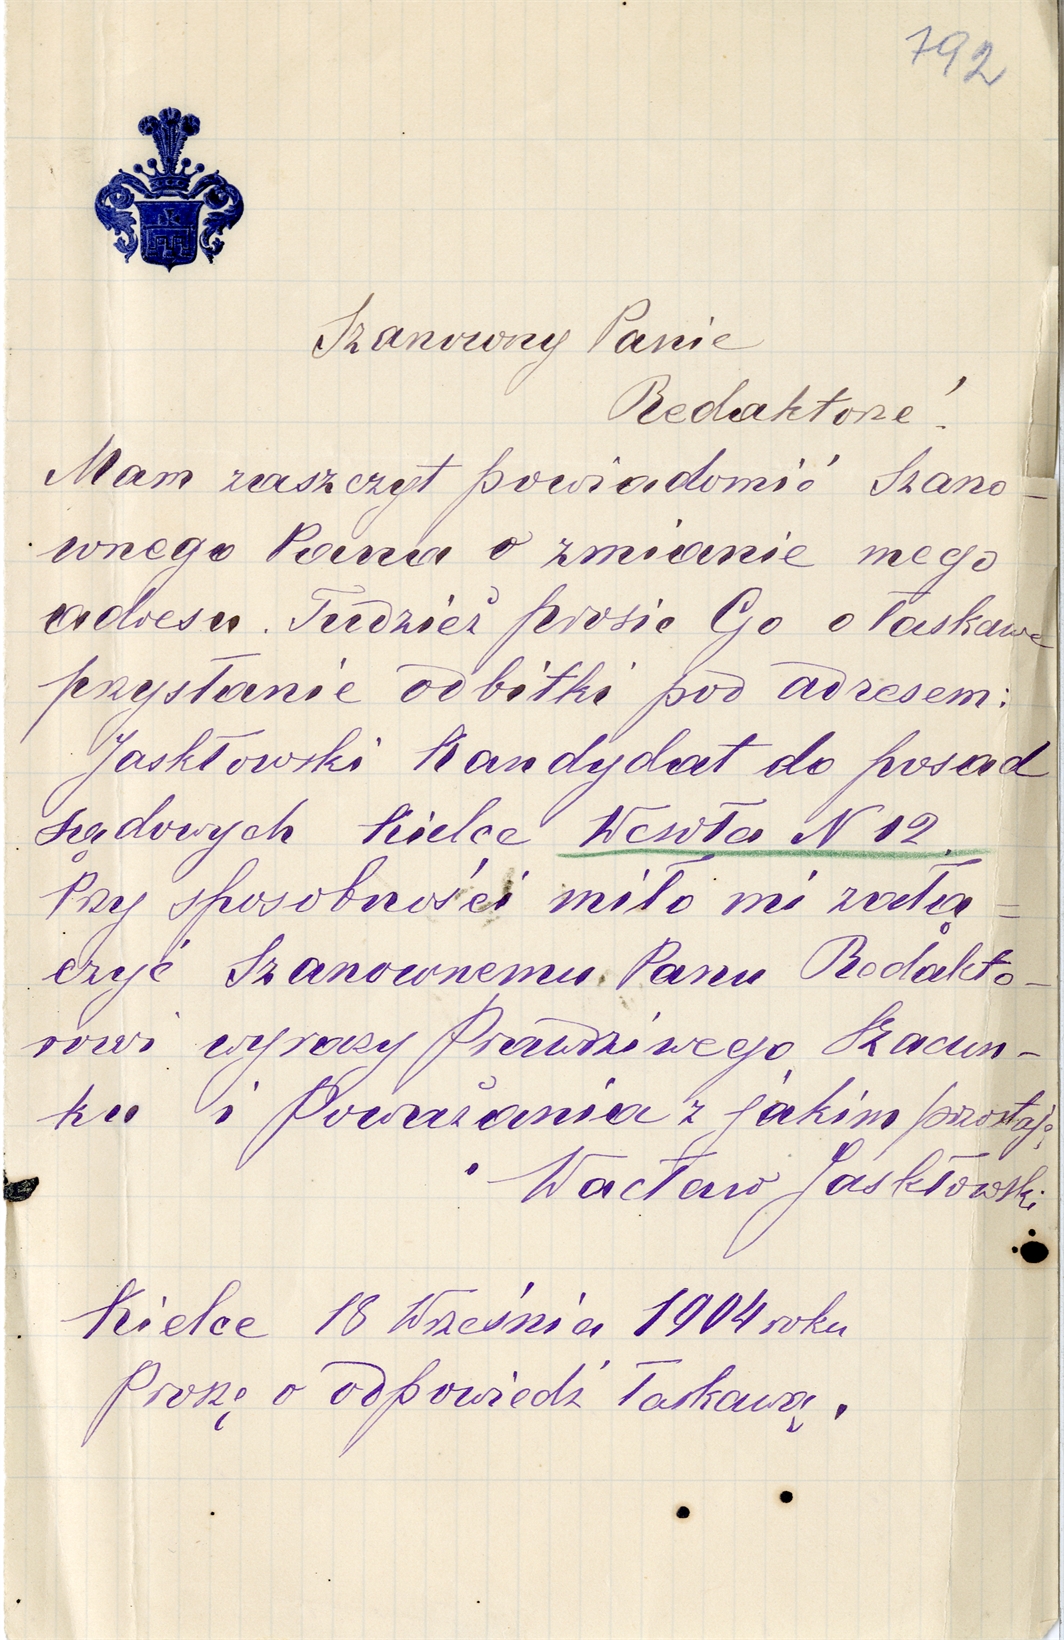 792
Szanowny Panie
Redaktorze!
Mam zaszczyt powiadomić Szano-
wnego Pana o zmianie mego
adresu. Tudzież prosić Go o łaskawe
przysłanie odbitki pod adresem:
Jaskłowski Kandydat do posad
sądowych Kielce Wesoła N 12.
Przy sposobności miło mi załą=
czyć Szanownemu Panu Redakto-
rowi wyrazy Prawdziwego Szacun-
ku i Poważania z jakim pozostaję
Wacław Jaskłowski
Kielce 18 Września 1904 roku
Proszę o odpowiedź łaskawą.